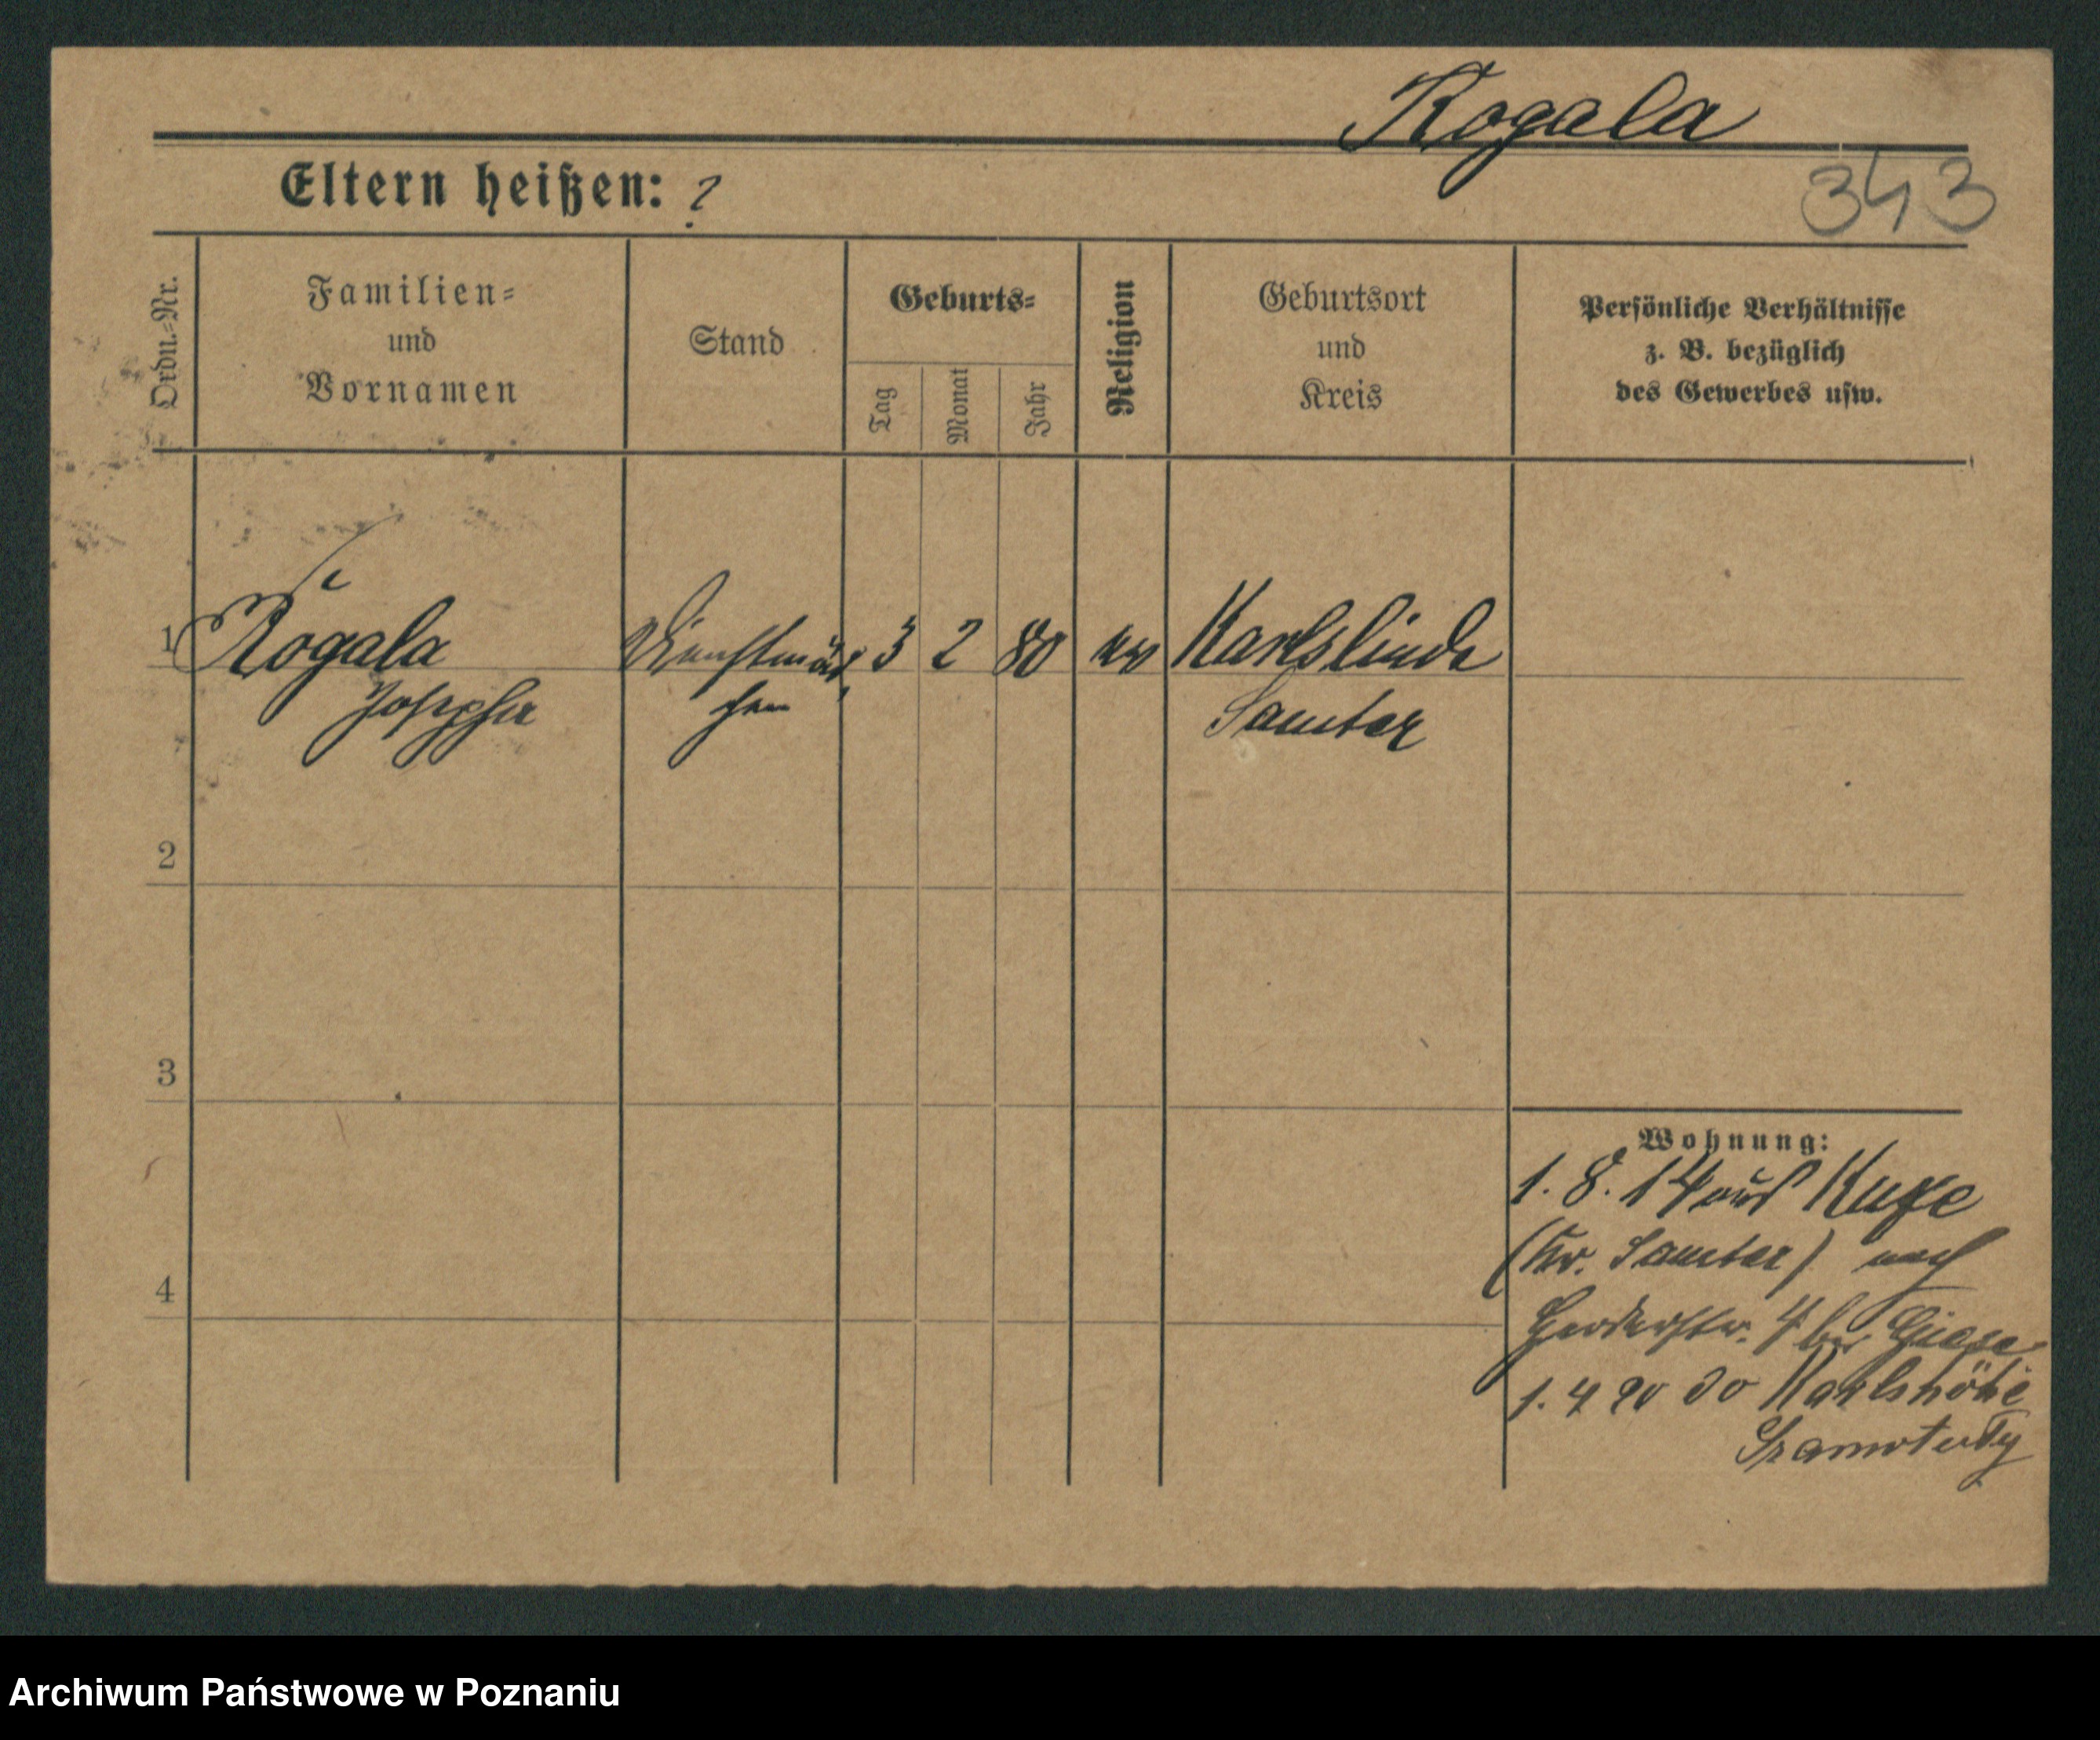 Rogala
343
Eltern heißen: ?
Ordn.=Nr.
Familien=
und
Vornamen
Stand
Geburts=
Tag
Monat
Jahr
Religion
Geburtsort
und
Kreis
Persönliche Verhältnisse
z. B. bezüglich
des Gewerbes usw.
1 Rogala Dienstmäd 3 2 80 Karlslinde
Josepha chen Samter
2
3
4
Wohnung:
1. 8. 14 aus
(Kr. Samter) nach
Herderstr. 4 bei Giese
1. 4 20 do Karlshöhe
Szamotuly
Archiwum Państwowe w Poznaniu